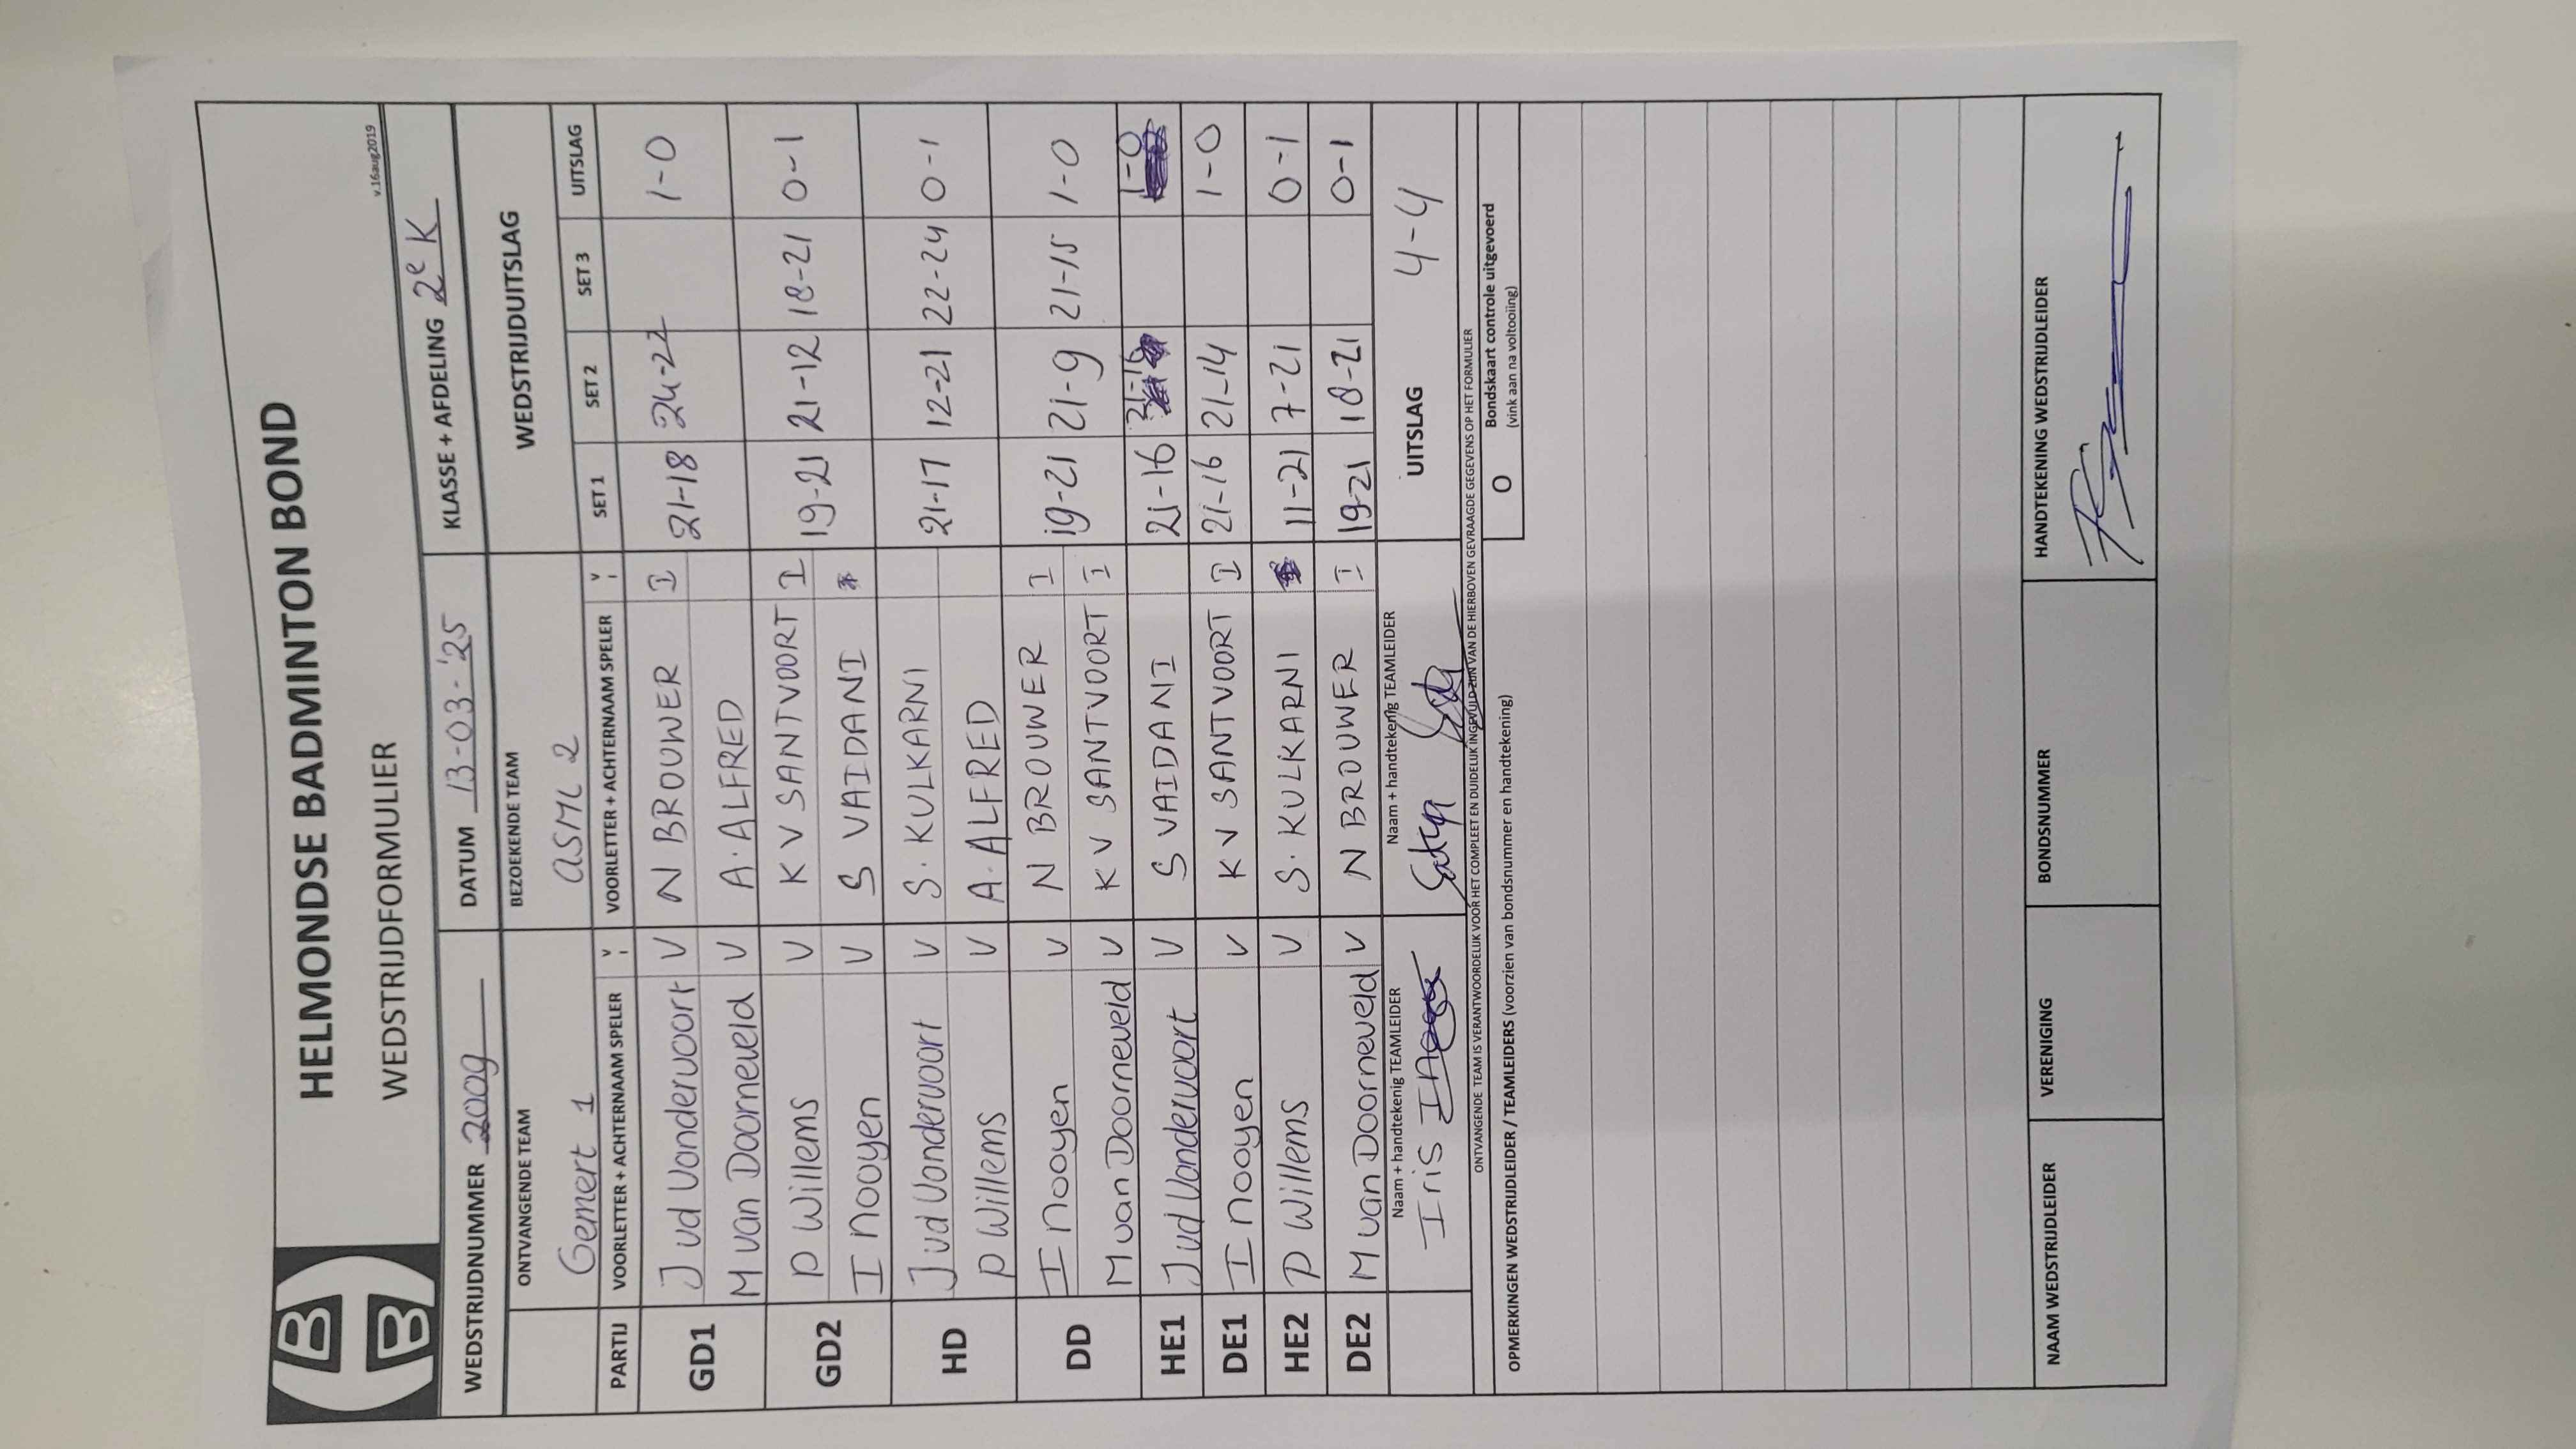 HELMONDSE BADMINTON BOND
WEDSTRIJDFORMULIER
v.16aug2019
WEDSTRIJDNUMMER 2009 DATUM 13-03-'25 KLASSE + AFDELING 2e K
ONTVANGENDE TEAM BEZOEKENDE TEAM WEDSTRIJDUITSLAG
Gemert 1 ASML 2
PARTIJ VOORLETTER + ACHTERNAAM SPELER V VOORLETTER + ACHTERNAAM SPELER V SET 1 SET 2 SET 3 UITSLAG
GD1 J vd Vondervoort V N BROUWER I 21-18 24-22 1-0
M van Doorneveld V A. ALFRED
GD2 P Willems V K V SANTVOORT I 19-21 21-12 18-21 0-1
I nooyen V S VAIDANI
HD J vd Vondervoort V S. KULKARNI 21-17 12-21 22-24 0-1
P Willems V A. ALFRED
DD I nooyen V N BROUWER I 19-21 21-9 21-15 1-0
M van Doorneveld V K V SANTVOORT I
HE1 J vd Vondervoort V S VAIDANI 21-16 1-0
DE1 I nooyen V K V SANTVOORT I 21-16 21-14 1-0
HE2 P Willems V S. KULKARNI 11-21 7-21 0-1
DE2 M van Doorneveld V N BROUWER I 19-21 18-21 0-1
Naam + handtekenig TEAMLEIDER Naam + handtekenig TEAMLEIDER UITSLAG 4-4
Iris
ONTVANGENDE TEAM IS VERANTWOORDELIJK VOOR HET COMPLEET EN DUIDELIJK INGEVULD ZIJN VAN DE HIERBOVEN GEVRAAGDE GEGEVENS OP HET FORMULIER
OPMERKINGEN WEDSTRIJDLEIDER / TEAMLEIDERS (voorzien van bondsnummer en handtekening)
O Bondskaart controle uitgevoerd
(vink aan na voltooiing)
NAAM WEDSTRIJDLEIDER VERENIGING BONDSNUMMER HANDTEKENING WEDSTRIJDLEIDER